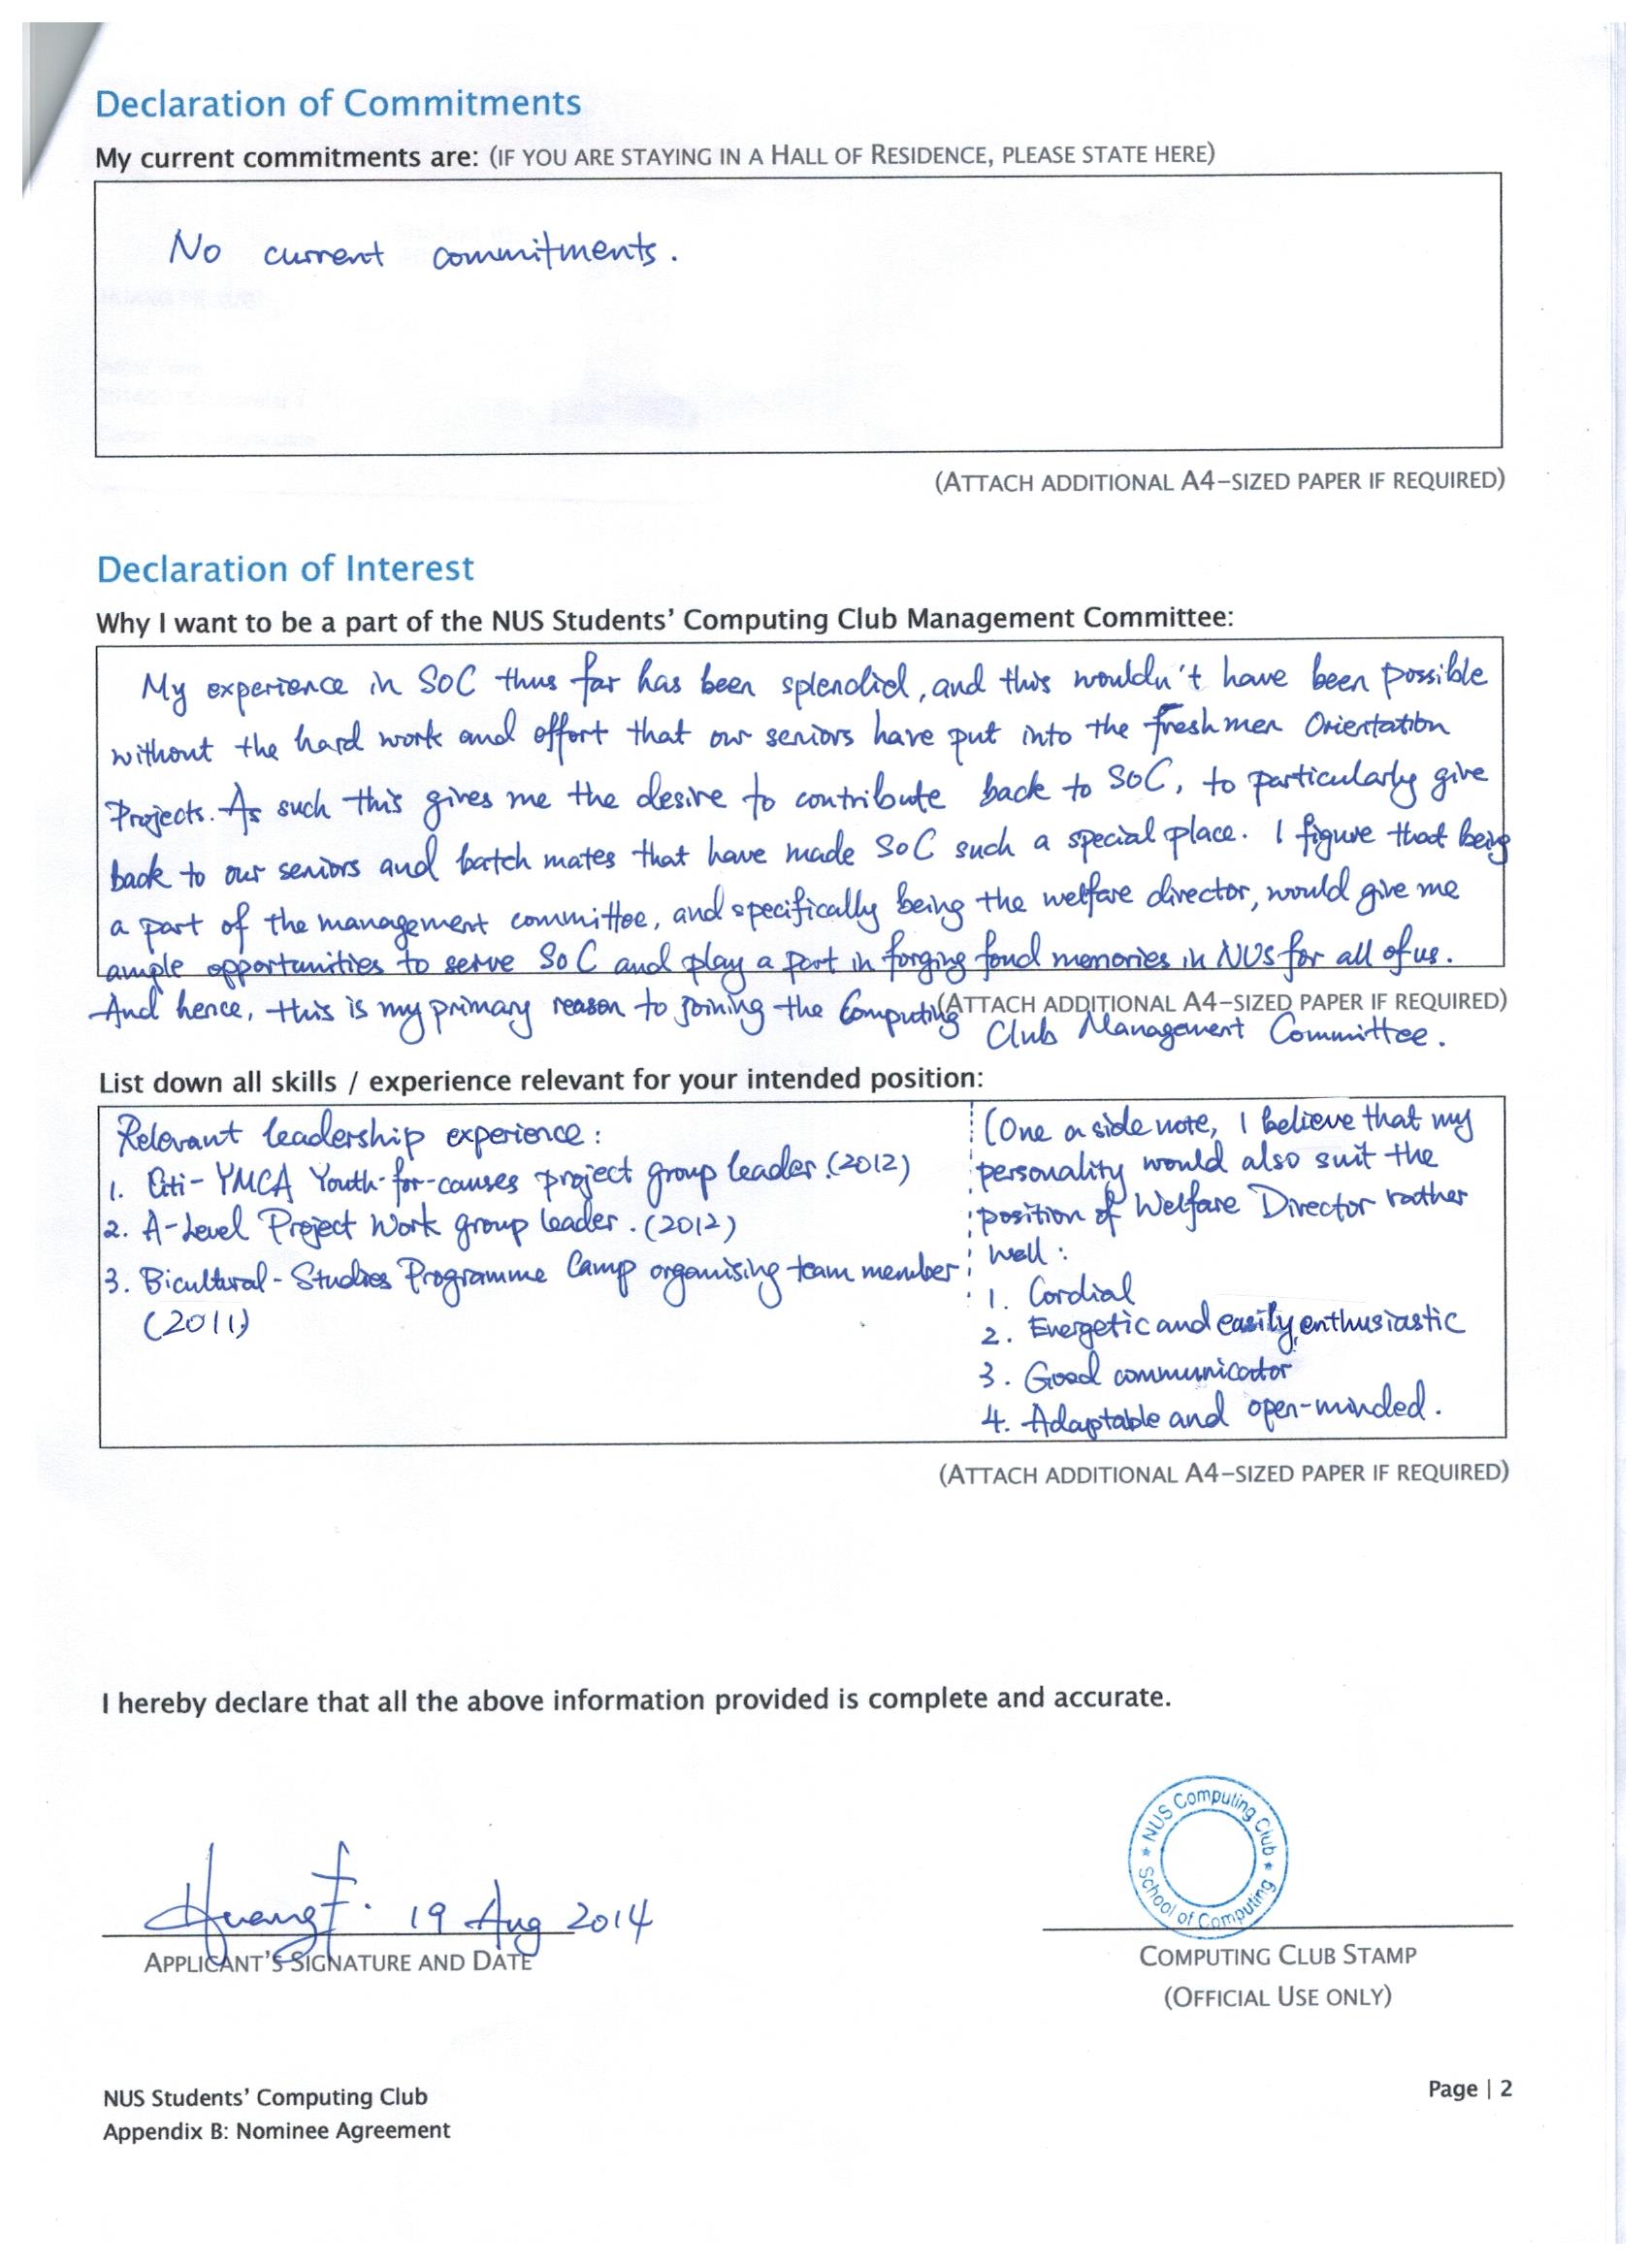 Declaration of Commitments
My current commitments are: (IF YOU ARE STAYING IN A HALL OF RESIDENCE, PLEASE STATE HERE)
No current commitments.
(ATTACH ADDITIONAL A4-SIZED PAPER IF REQUIRED)
Declaration of Interest
Why I want to be a part of the NUS Students' Computing Club Management Committee:
My experience in SoC thus far has been splendid, and this wouldn't have been possible
without the hard work and effort that our seniors have put into the freshmen Orientation
Projects. As such this gives me the desire to contribute back to SoC, to particularly give
back to our seniors and batch mates that have made SoC such a special place. I figure that being
a part of the management committee, and specifically being the welfare director, would give me
ample opportunities to serve SoC and play a part in forging fond memories in NUS for all of us.
And hence, this is my primary reason to joining the Computing
(ATTACH ADDITIONAL A4-SIZED PAPER IF REQUIRED)
Club Management Committee.
List down all skills / experience relevant for your intended position:
Relevant leadership experience:
1. Citi-YMCA Youth-for-causes project group leader. (2012)
2. A-Level Project Work group leader. (2012)
3. Bicultural-Studies Programme Camp organising team member
(2011)
(One a side note, I believe that my
personality would also suit the
position of Welfare Director rather
well:
1. Cordial
2. Energetic and easily enthusiastic
3. Good communicator
4. Adaptable and open-minded.
(ATTACH ADDITIONAL A4-SIZED PAPER IF REQUIRED)
I hereby declare that all the above information provided is complete and accurate.
Huang F. 19 Aug 2014
APPLICANT'S SIGNATURE AND DATE
* NUS Computing Club *
School of Computing
COMPUTING CLUB STAMP
(OFFICIAL USE ONLY)
NUS Students' Computing Club
Appendix B: Nominee Agreement
Page | 2